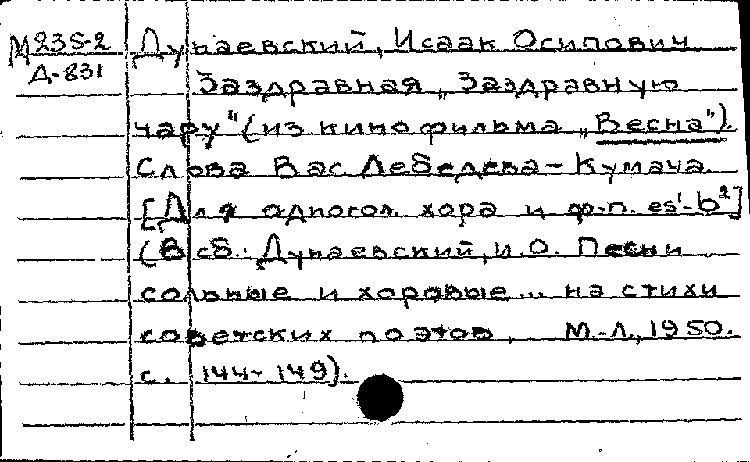 М235-2 Дунаевский, Исаак Осипович
Д-831 Заздравная „Заздравную
чару" (из кинофильма „Весна").
Слова Вас. Лебедева-Кумача.
[Для одногол. хора и ф-п. es¹-b²]
(В сб.: Дунаевский, И.О. Песни
сольные и хоровые... на стихи
советских поэтов. М.-Л., 1950.
с. 144-149).